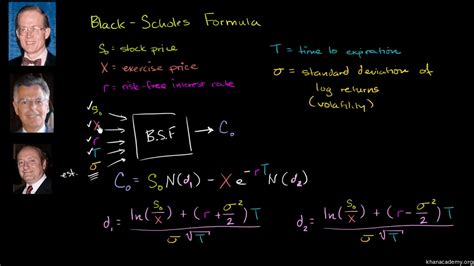 Black-Scholes Formula
S₀ = stock price
X = exercise price
r = risk-free interest rate
T = time to expiration
σ = standard deviation of
log returns
(volatility)
✓ S₀
✓ X
✓ r
✓ T
est. σ
B.S.F
C₀
C₀ = S₀N(d₁) - Xe^(-rT)N(d₂)
d₁ = (ln(S₀/X) + (r + σ²/2)T) / (σ√T)
d₂ = (ln(S₀/X) + (r - σ²/2)T) / (σ√T)
khanacademy.org